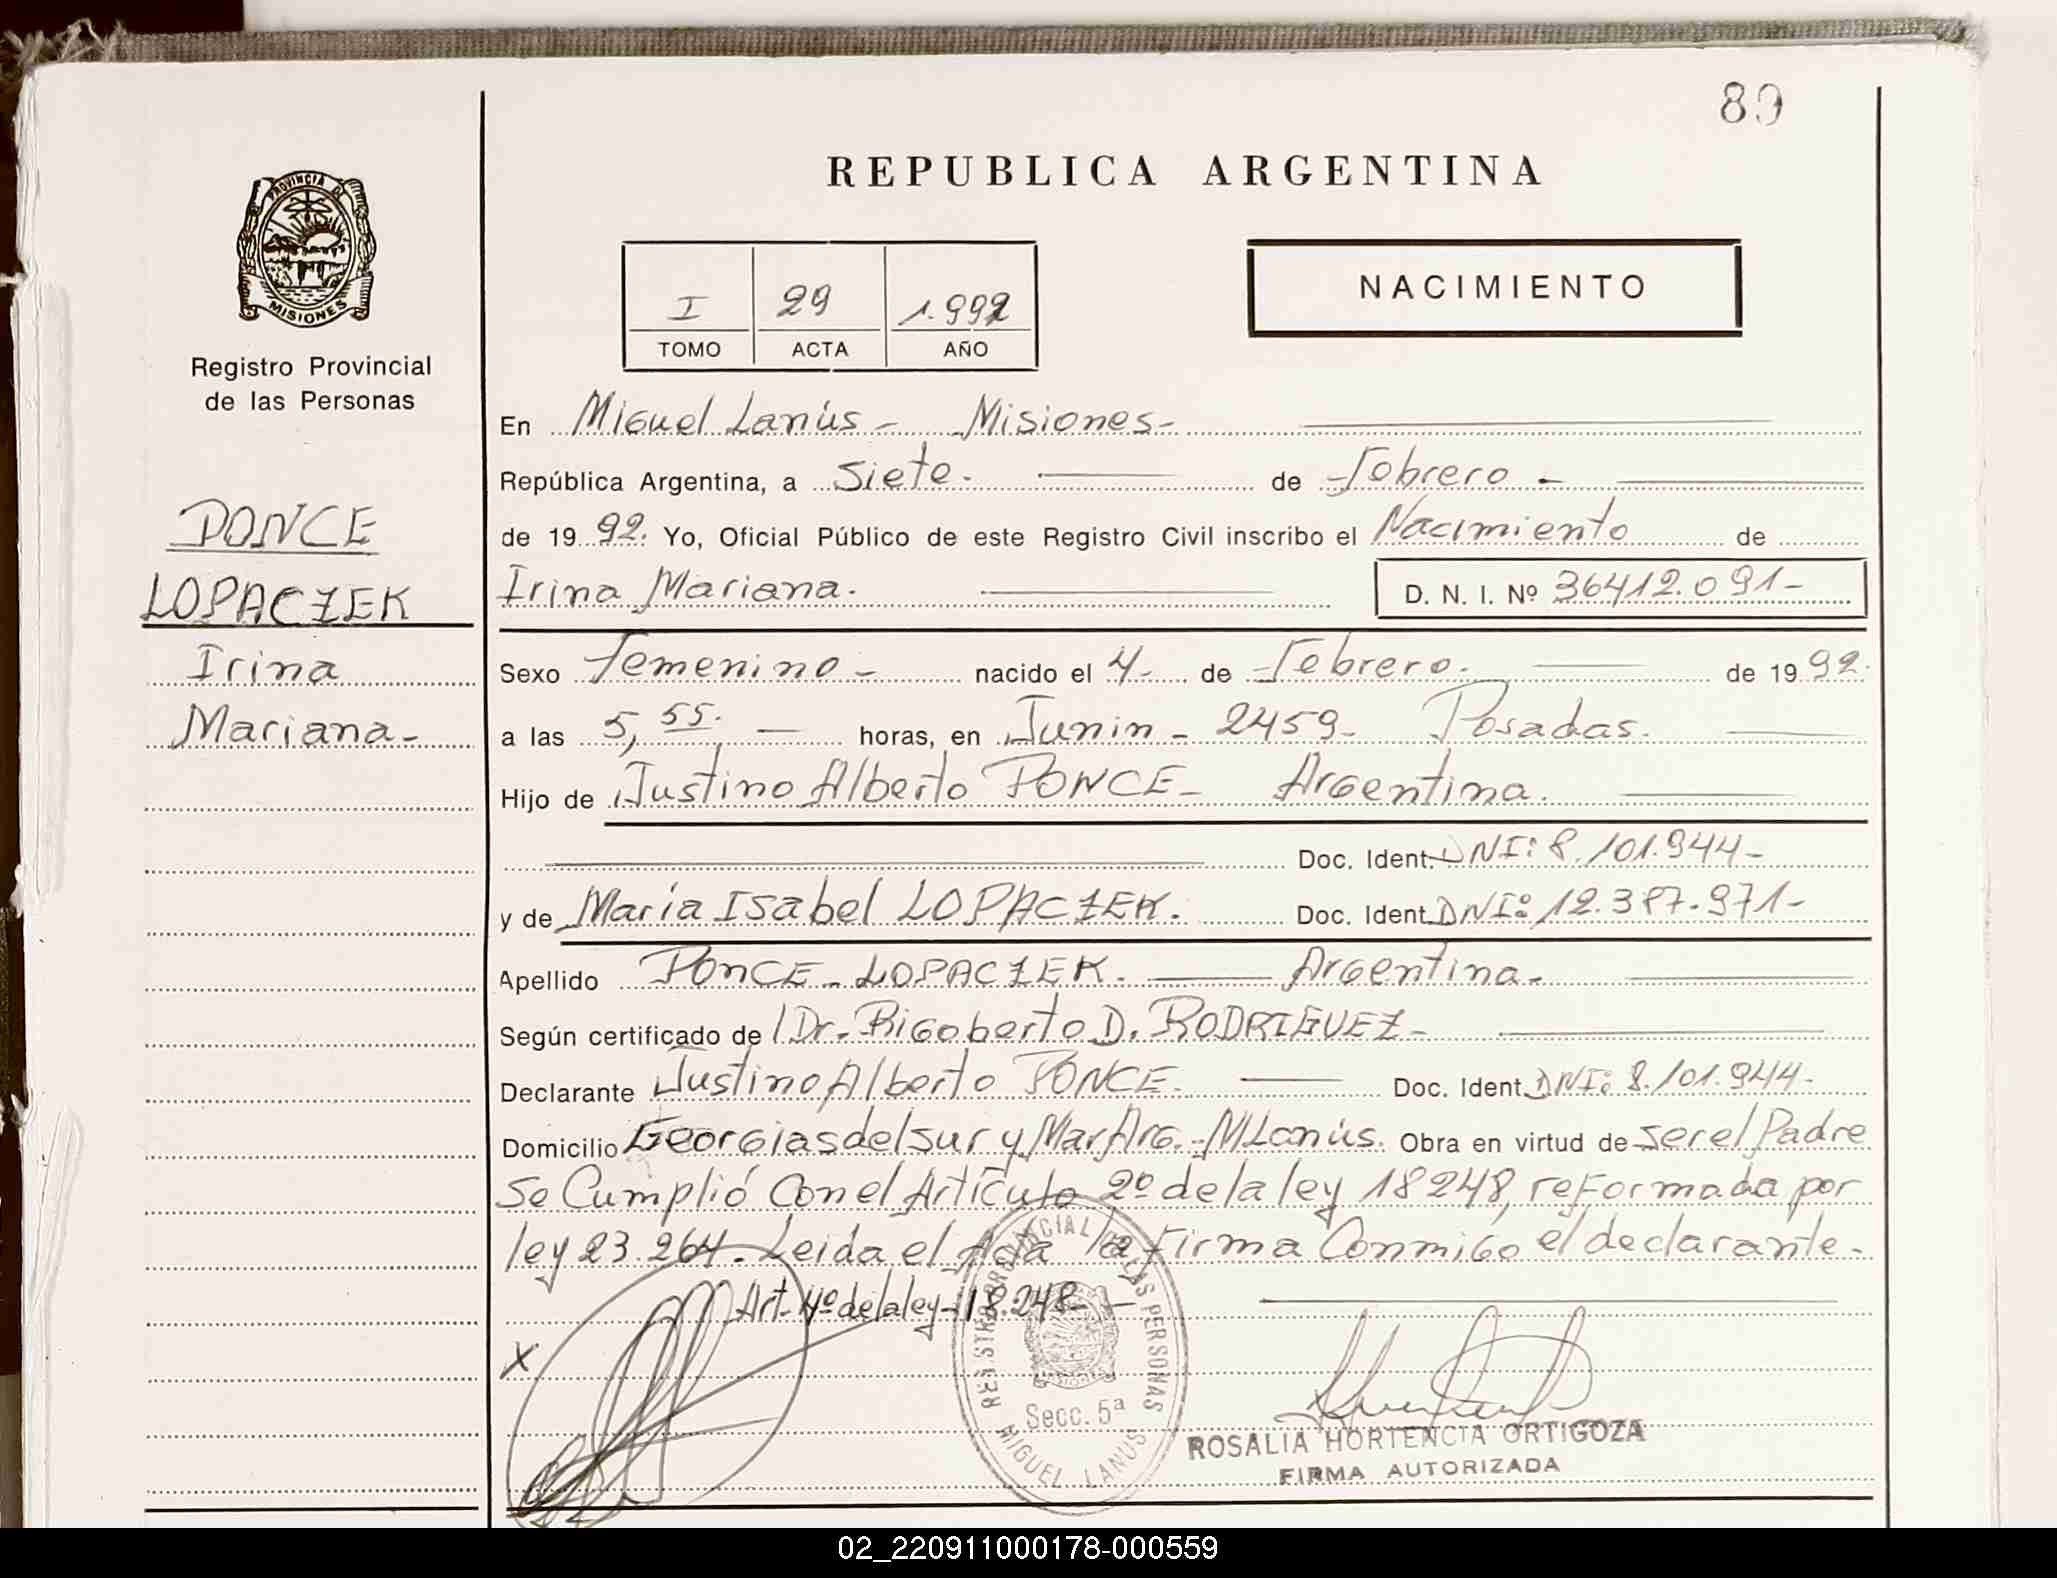 89
REPUBLICA ARGENTINA
PROVINCIA DE
MISIONES
Registro Provincial
de las Personas
I 29 1.992
TOMO ACTA AÑO
NACIMIENTO
PONCE
LOPACZEK
Irina
Mariana-
En Miguel Lanús - Misiones-
República Argentina, a siete. de Febrero -
de 1992. Yo, Oficial Público de este Registro Civil inscribo el Nacimiento de
Irina Mariana. D. N. I. Nº 36412.091-
Sexo femenino - nacido el 4- de Febrero. de 1992.
a las 5,55. — horas, en Junin - 2459- Posadas.
Hijo de Justino Alberto PONCE- Argentina.
Doc. Ident. DNI: 8.101.944-
y de María Isabel LOPACZEK. Doc. Ident. DNI: 12.387.971-
Apellido PONCE - LOPACZEK. — Argentina.
Según certificado de Dr. Rigoberto D. RODRIGUEZ-
Declarante Justino Alberto PONCE. — Doc. Ident. DNI: 8.101.944-
Domicilio Georgias del sur y Mar Arg.- M Lanús. Obra en virtud de ser el Padre
Se Cumplió Con el Artículo 2º de la ley 18248, reformada por
ley 23.264. Leida el Acta la Firma Conmigo el declarante.
Art- 4º de la ley-18.248-
X
REGISTRO PROVINCIAL DE LAS PERSONAS
MISIONES
Secc. 5ª
MIGUEL LANUS
ROSALIA HORTENCIA ORTIGOZA
FIRMA AUTORIZADA
02_220911000178-000559